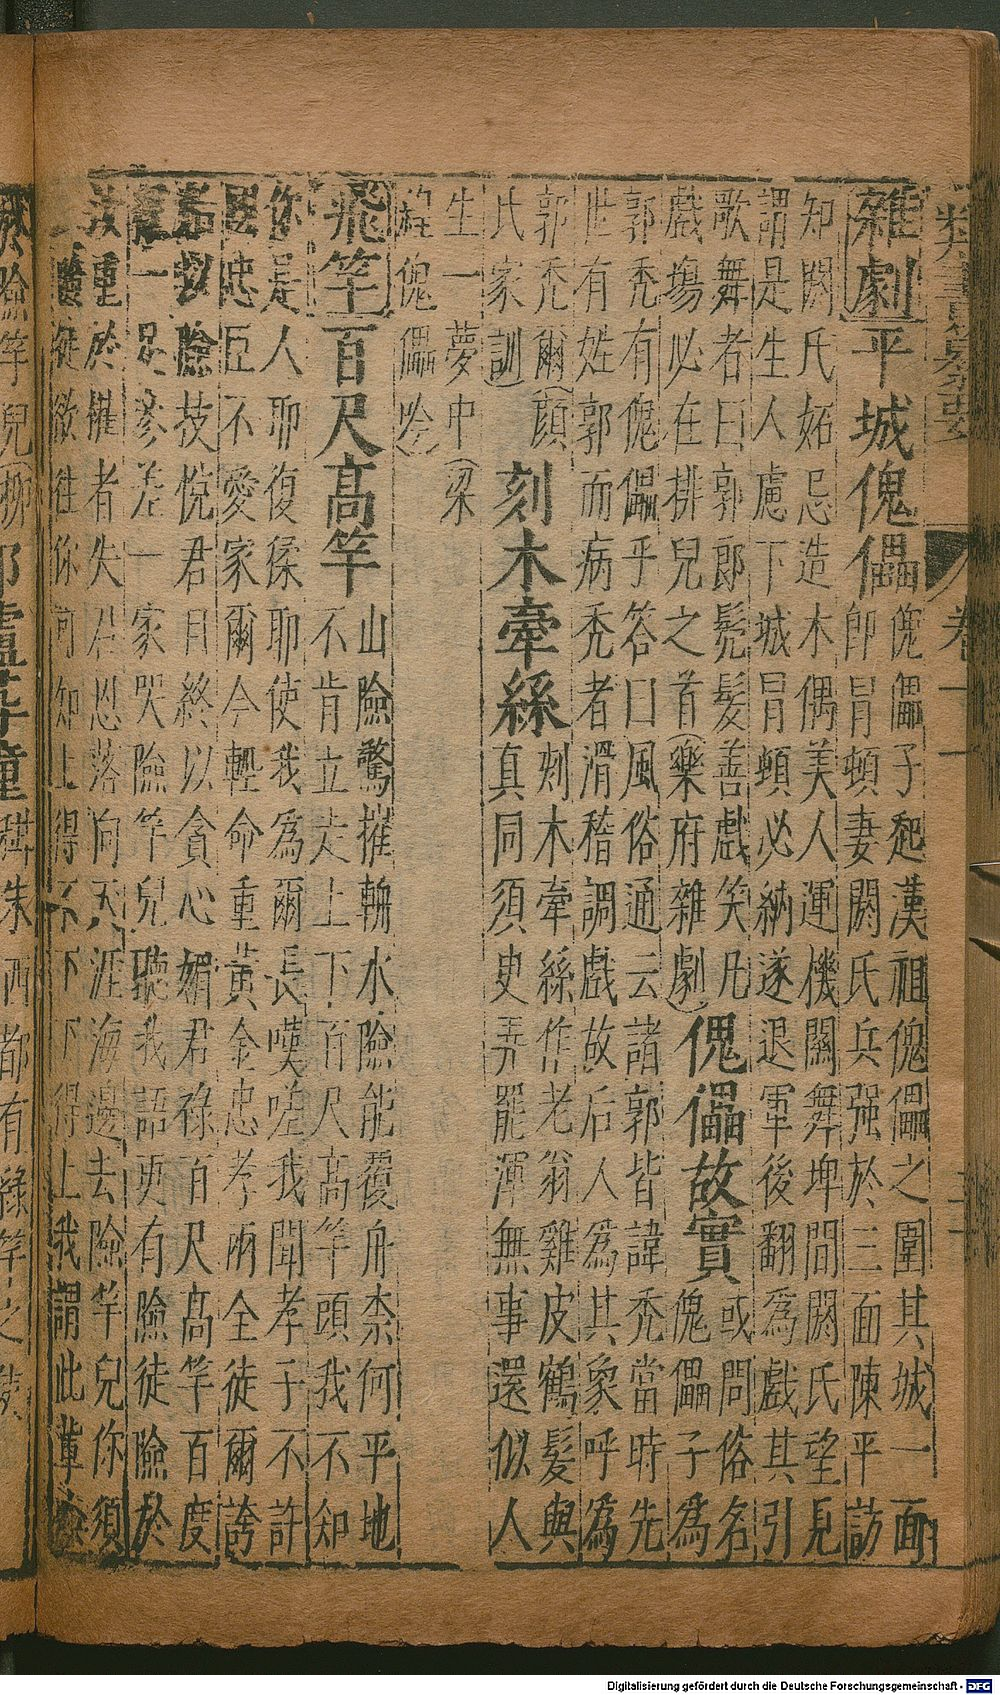 類書纂要 卷十一
雜劇 平城傀儡
傀儡子起漢祖傀儡之圍其城一面
即冒頓妻閼氏兵强於三面陳平訪
知閼氏妬忌造木偶美人運機關舞埤間閼氏望見
謂是生人慮下城冒頓必納遂退軍後翻為戲其引
歌舞者曰郭郎髡髮善戲笑凡
戲塲必在排兒之首(樂府雜劇)
傀儡故實
或問俗名
傀儡子為
郭禿有傀儡乎答曰風俗通云諸郭皆諱禿當時先
世有姓郭而病禿者滑稽調戲故后人為其象呼為
郭禿爾(顔
氏家訓)
刻木牽絲
刻木牽絲作老翁雞皮鶴髮與
真同須臾弄罷渾無事還似人
生一夢中(梁
傀儡吟)
飛竿 百尺高竿
山險驚摧輈水險能覆舟柰何平地
不肯立走上下百尺高竿頭我不知
你是人耶復猱耶使我為爾長嘆嗟我聞孝子不許
國忠臣不愛家爾今輕命重黃金忠孝兩全徒爾誇
始以險技悅君目終以貪心媚君祿百尺高竿百度
一足參差一家哭險竿兒聽我語更有險徒險於
汝重於權者失君恩落向天涯海邊去險竿兒你須
徒欲往你何知上得不下下得上我謂此輩險
於險竿兒(柳
都盧尋橦
Digitalisierung gefördert durch die Deutsche Forschungsgemeinschaft - DFG